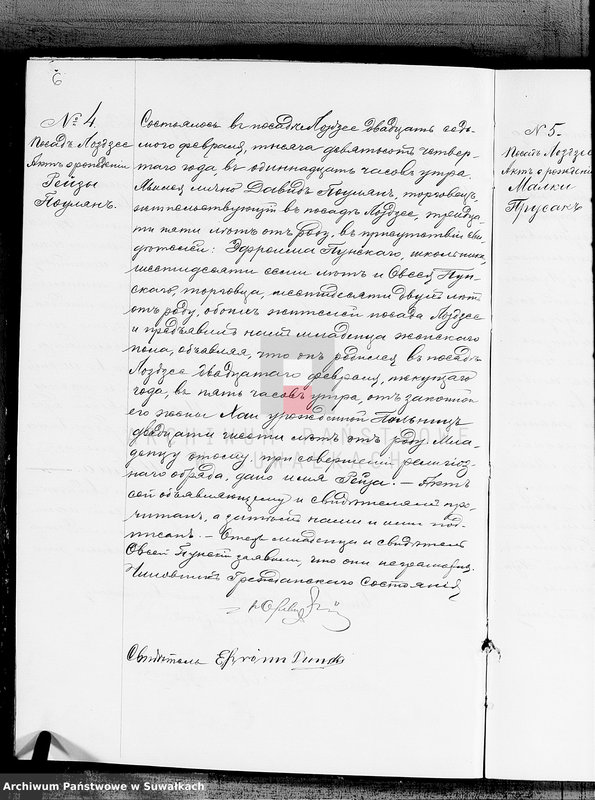 № 4
Посадъ Лоздзее
Актъ о рожденіи
Рейзы
Поулянъ.
Состоялось въ посадѣ Лоздзее двадцать седь-
мого февраля, тысяча девятьсотъ четвер-
таго года, въ одиннадцать часовъ утра.
Явился лично Давидъ Поулянъ, торговецъ,
жительствующій въ посадѣ Лоздзее, тридца-
ти пяти лѣтъ отъ роду, въ присутствіи сви-
дѣтелей: Эфроима Пунскаго, школьника,
шестидесяти семи лѣтъ и Овсея Пун-
скаго, торговца, шестидесяти двухъ лѣтъ
отъ роду, обоихъ жителей посада Лоздзее
и предъявилъ намъ младенца женскаго
пола, объявляя, что онъ родился въ посадѣ
Лоздзее двадцатаго февраля, текущаго
года, въ пять часовъ утра, отъ законной
его жены Хаи урожденной
двадцати шести лѣтъ отъ роду. Мла-
денцу этому, при совершеніи религіоз-
наго обряда, дано имя Рейза. — Актъ
сей объявляющему и свидѣтелямъ про-
читанъ, а затѣмъ нами и ими под-
писанъ. — Отецъ младенца и свидѣтель
Овсей Пунскій заявили, что они неграмотны.
Чиновникъ Гражданскаго Состоянія,
Свидѣтель Efroim Punski
№ 5.
Посадъ Лоздзее
Актъ о рожденіи
Малки
Прусакъ
ARCHIWUM PAŃSTWOWE
W SUWAŁKACH
Archiwum Państwowe w Suwałkach